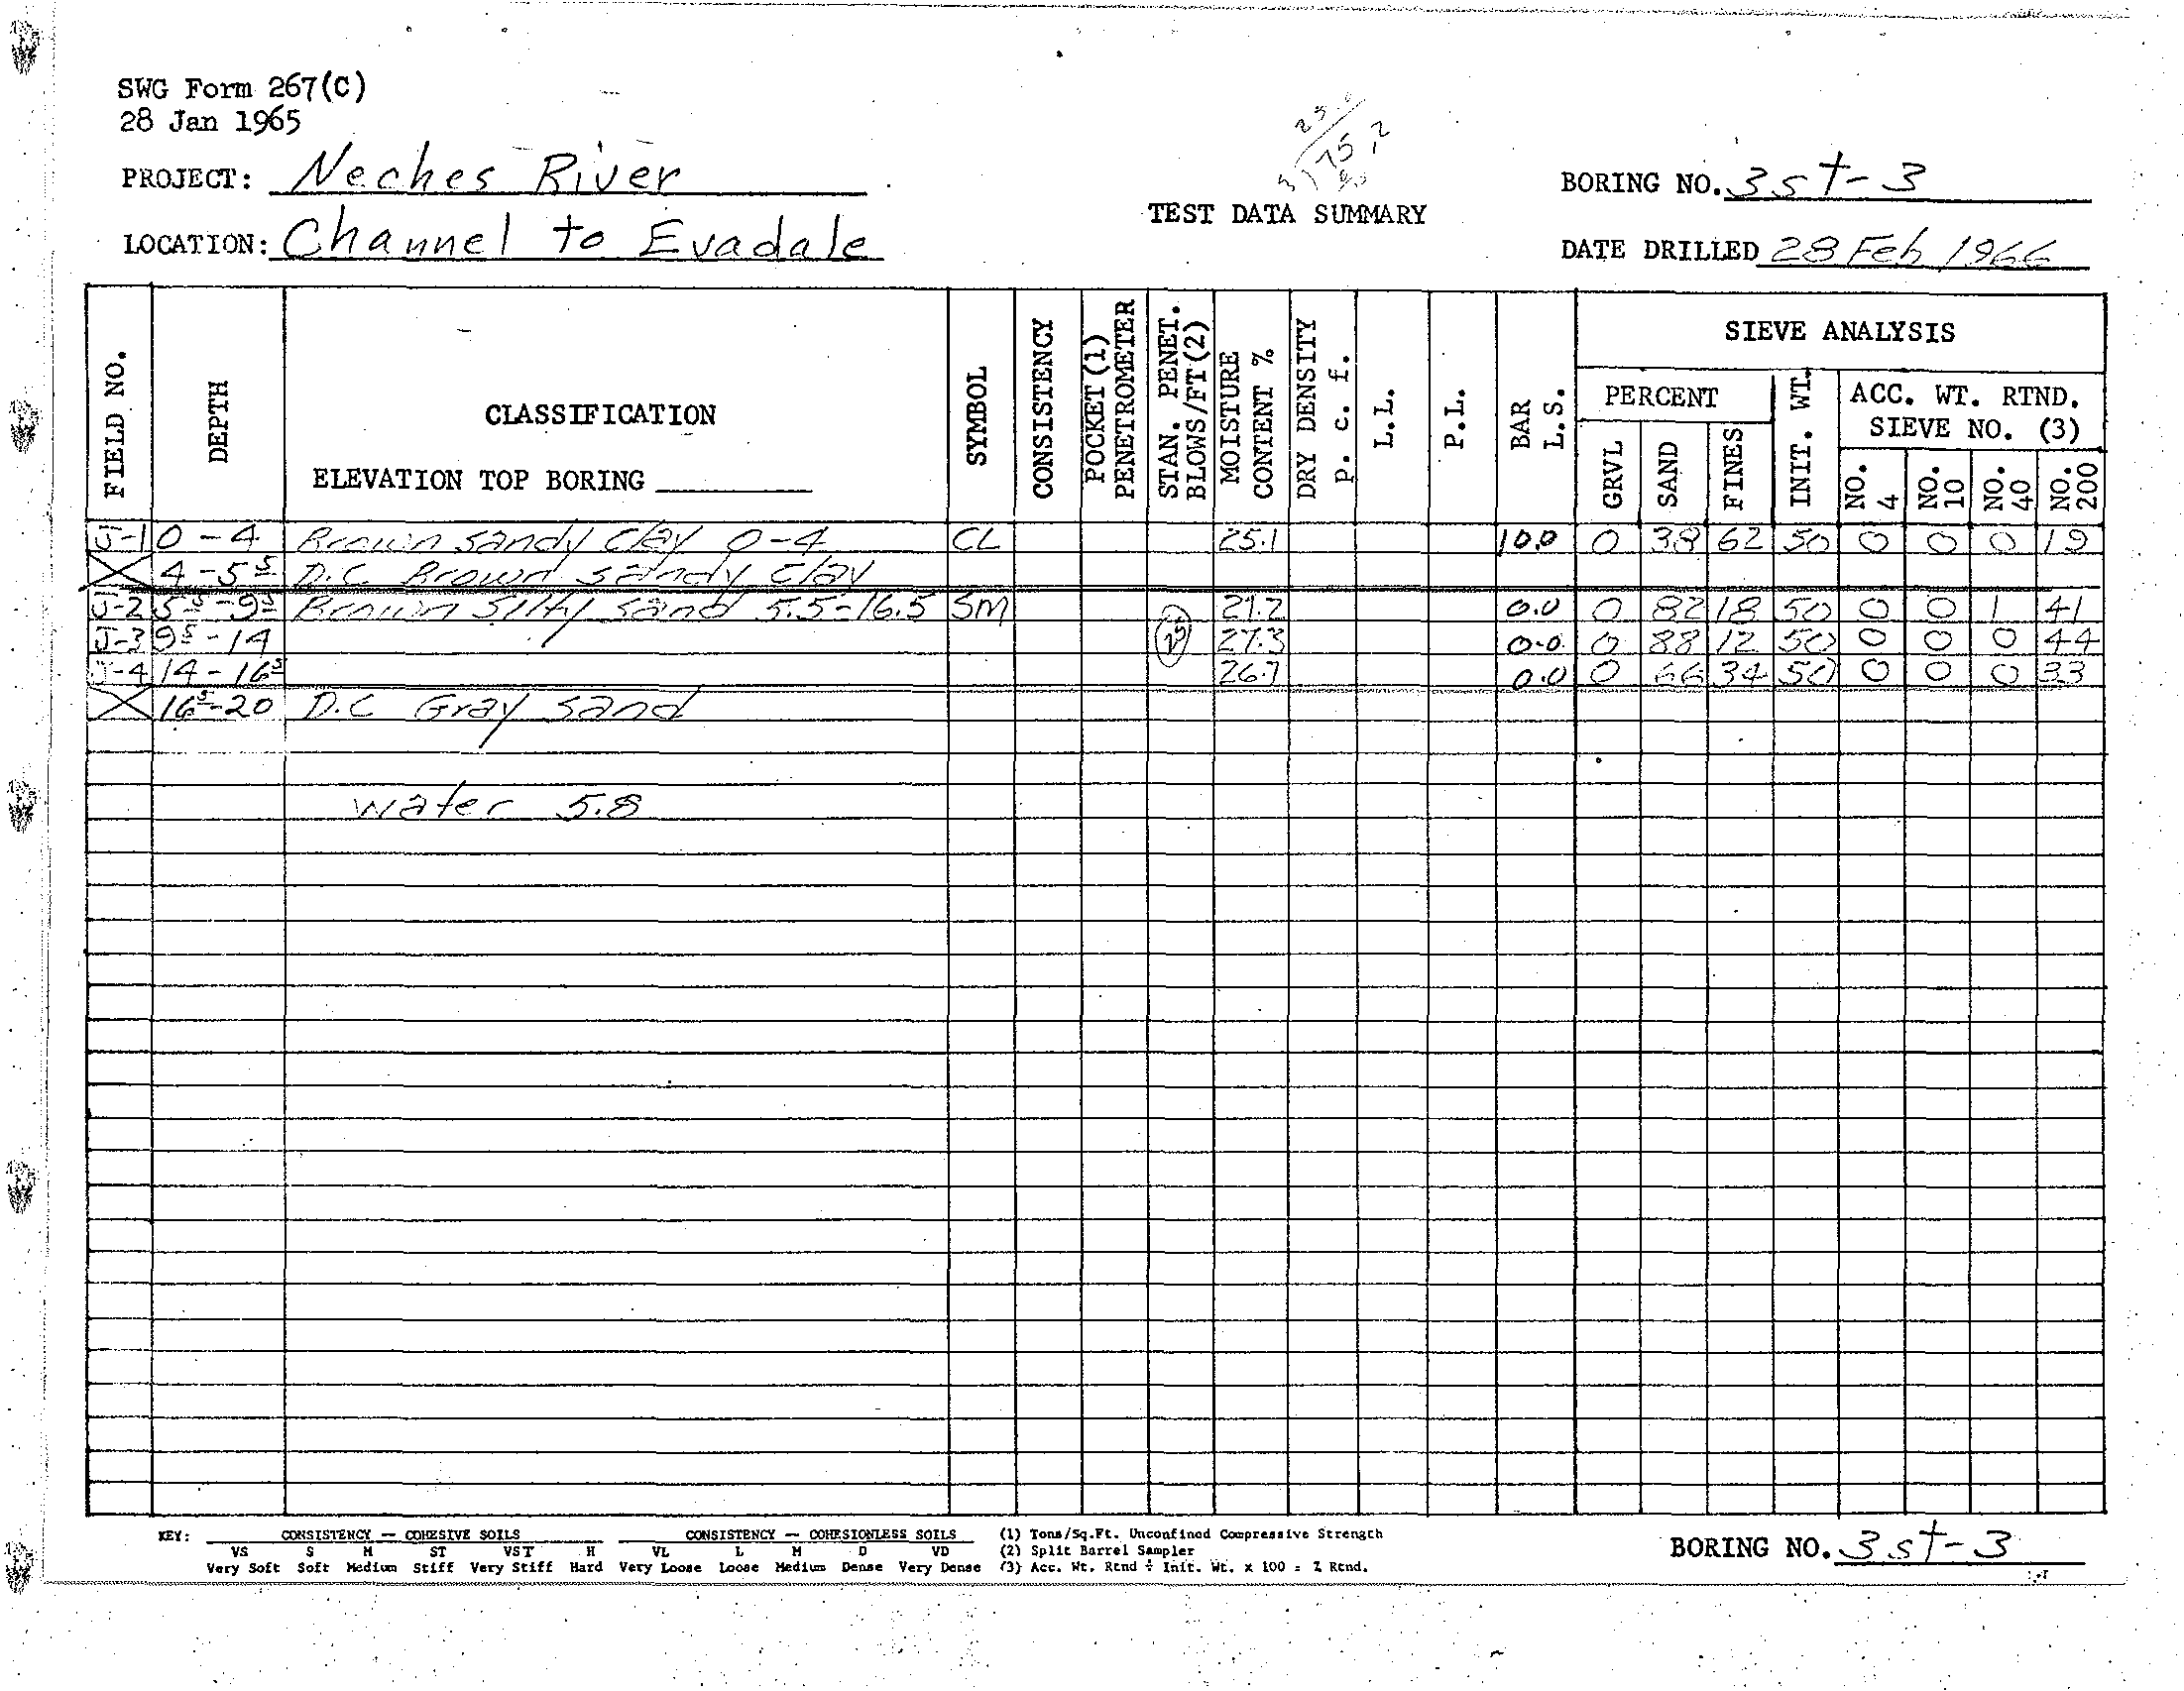 SWG Form 267(C)
28 Jan 1965
PROJECT: Neches River
LOCATION: Channel to Evadale
25.0
3)75.2
TEST DATA SUMMARY
BORING NO. 3st-3
DATE DRILLED 28 Feb 1966
FIELD NO.
DEPTH
CLASSIFICATION
ELEVATION TOP BORING
SYMBOL
CONSISTENCY
POCKET (1) PENETROMETER
STAN. PENET. BLOWS/FT(2)
MOISTURE CONTENT %
DRY DENSITY p. c. f.
L.L.
P.L.
BAR L.S.
SIEVE ANALYSIS
PERCENT
GRVL
SAND
FINES
INIT. WT.
ACC. WT. RTND.
SIEVE NO. (3)
NO. 4
NO. 10
NO. 40
NO. 200
J-1 0-4 Brown sandy clay 0-4 CL 25.1 10.0 0 38 62 50 0 0 0 19
4-5⁵ D.C Brown sandy clay
J-2 5⁵-9⁵ Brown silty sand 5.5-16.5 SM 21.2 0.0 0 82 18 50 0 0 1 41
J-3 9⁵-14 25 27.3 0.0 0 88 12 50 0 0 0 44
J-4 14-16⁵ 26.7 0.0 0 66 34 50 0 0 0 33
16⁵-20 D.C Gray sand
water 5.8
KEY: CONSISTENCY — COHESIVE SOILS CONSISTENCY — COHESIONLESS SOILS (1) Tons/Sq.Ft. Unconfined Compressive Strength
VS S M ST VST H VL L M D VD (2) Split Barrel Sampler
Very Soft Soft Medium Stiff Very Stiff Hard Very Loose Loose Medium Dense Very Dense (3) Acc. Wt. Rtnd ÷ Init. Wt. x 100 = % Rtnd.
BORING NO. 3st-3